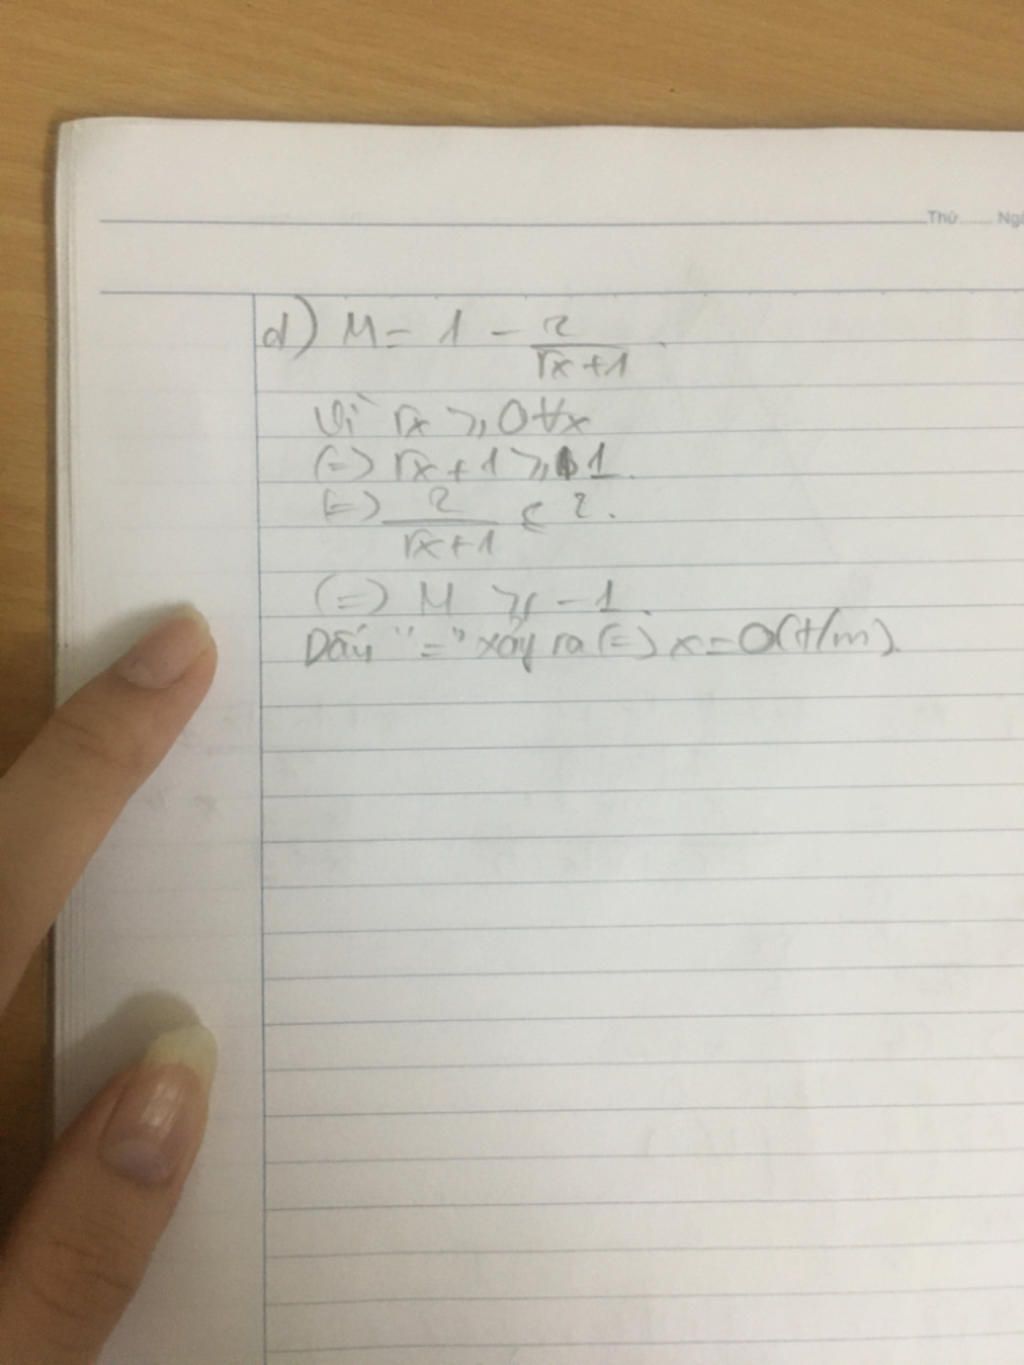 Thứ ...... Ngà
d) M = 1 - 2/(√x+1)
Vì √x ⩾ 0 ∀x
(=) √x + 1 ⩾ 1.
(=) 2/(√x+1) ≤ 2.
(=) M ⩾ -1.
Dấu "=" xảy ra (=) x = 0 (t/m).